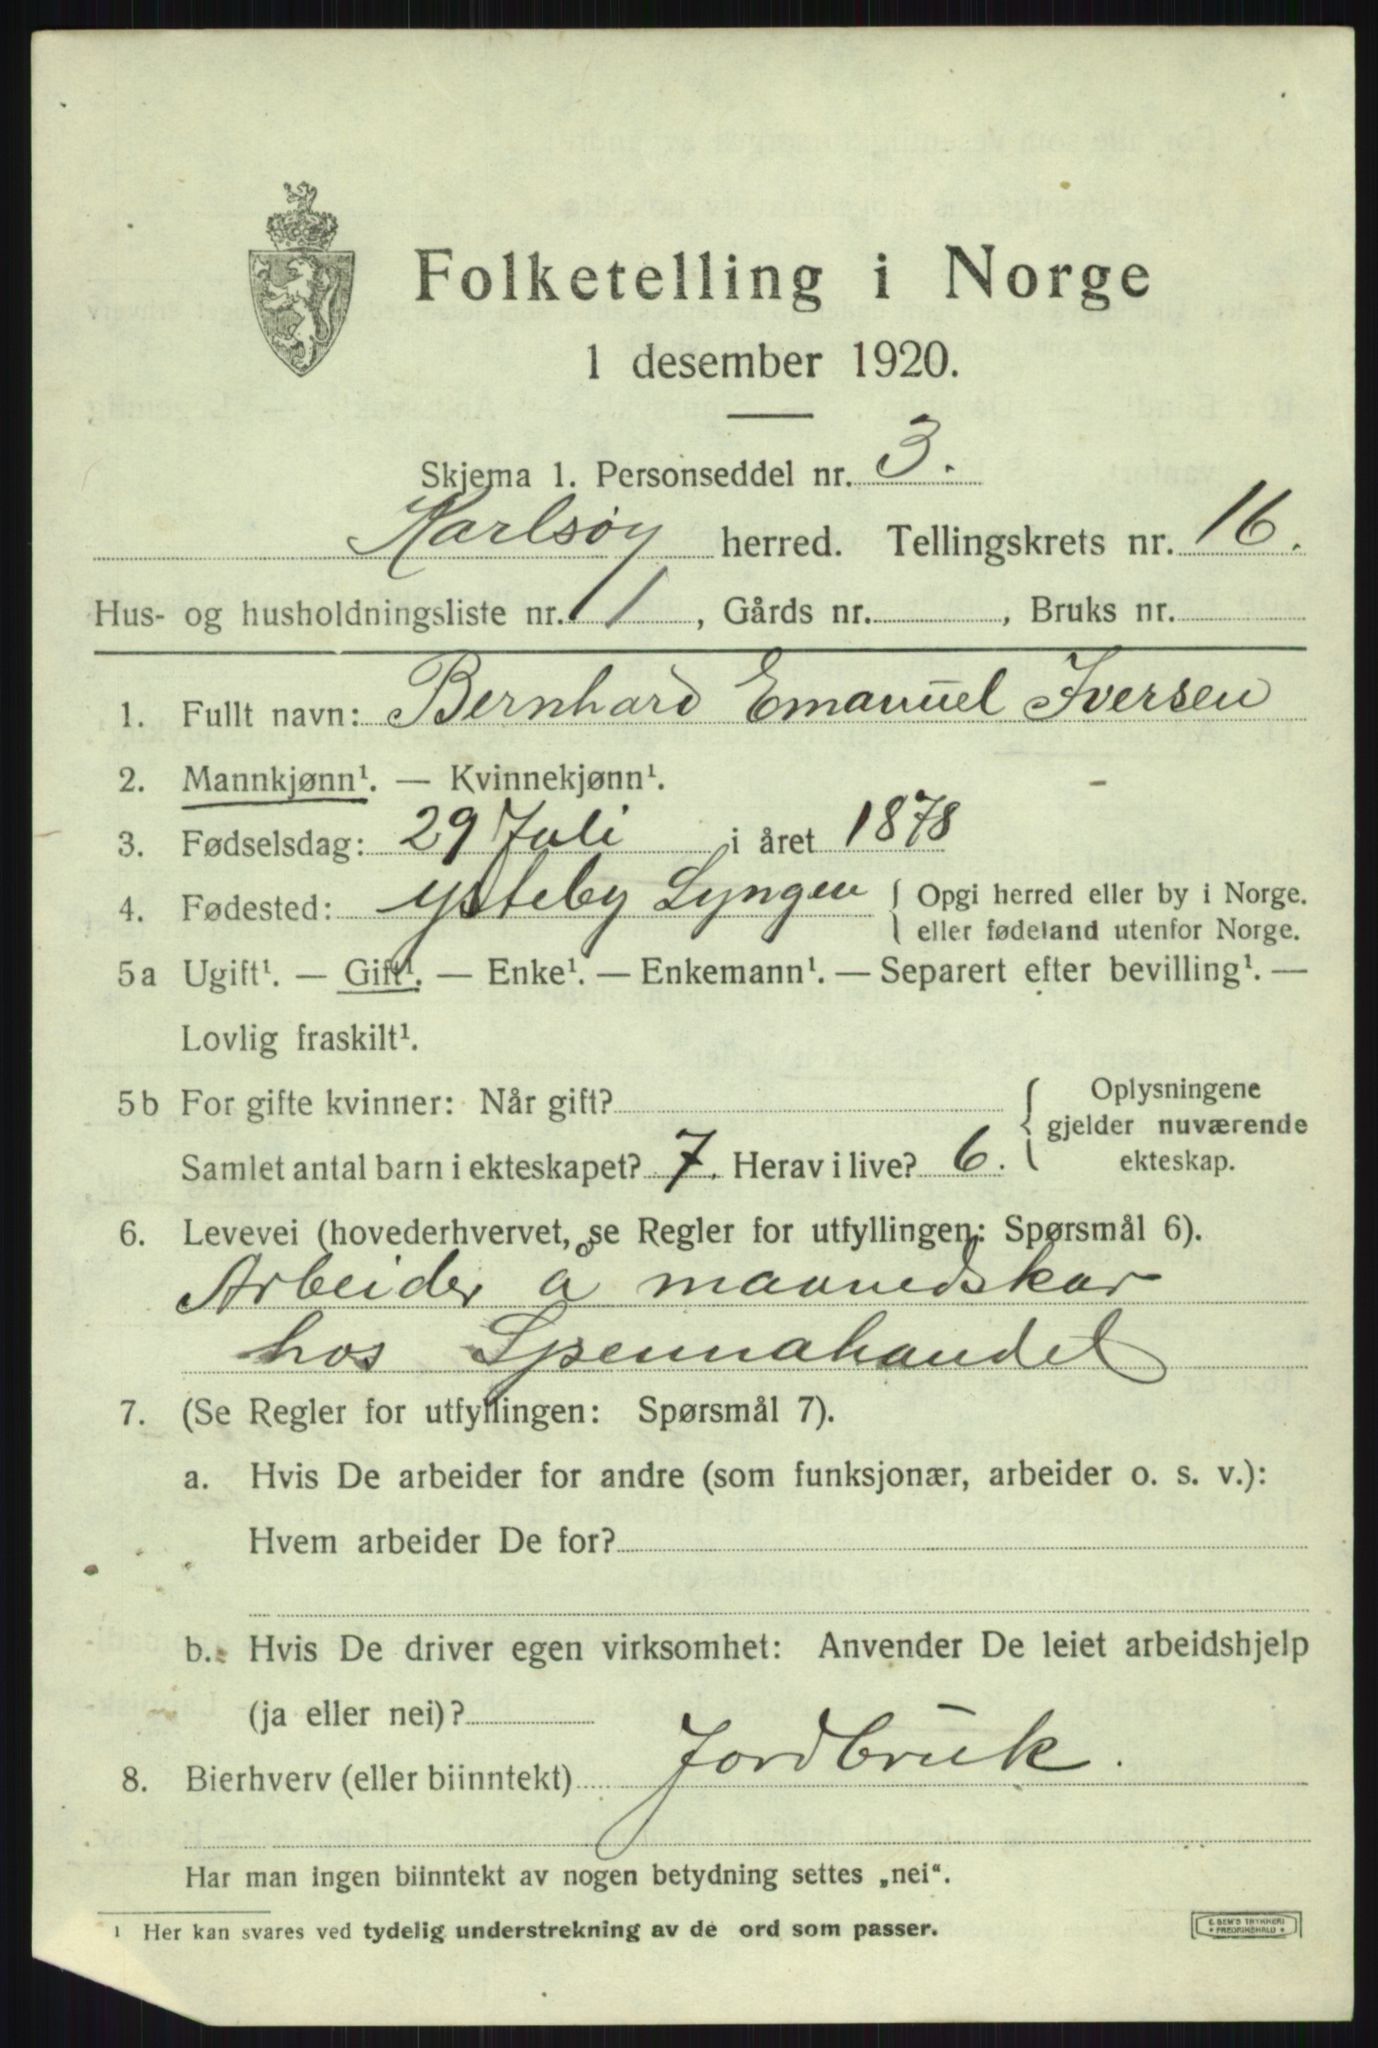 Folketelling i Norge
1 desember 1920.
Skjema 1. Personseddel nr. 3.
Karlsøy herred. Tellingskrets nr. 16.
Hus- og husholdningsliste nr. 1, Gårds nr. , Bruks nr.
1. Fullt navn: Bernhard Emanuel Iversen
2. Mannkjønn¹. — Kvinnekjønn¹.
3. Fødselsdag: 29 Juli i året 1878
4. Fødested: Ysteby Lyngen { Opgi herred eller by i Norge.
eller fødeland utenfor Norge.
5a Ugift¹. — Gift¹. — Enke¹. — Enkemann¹. — Separert efter bevilling¹. —
Lovlig fraskilt¹.
5b For gifte kvinner: Når gift? { Oplysningene
gjelder nuværende
Samlet antal barn i ekteskapet? 7. Herav i live? 6. ekteskap.
6. Levevei (hovederhvervet, se Regler for utfyllingen: Spørsmål 6).
Arbeider å
hos
7. (Se Regler for utfyllingen: Spørsmål 7).
a. Hvis De arbeider for andre (som funksjonær, arbeider o. s. v.):
Hvem arbeider De for?
b. Hvis De driver egen virksomhet: Anvender De leiet arbeidshjelp
(ja eller nei)?
8. Bierhverv (eller biinntekt) Jordbruk.
Har man ingen biinntekt av nogen betydning settes „nei“.
¹ Her kan svares ved tydelig understrekning av de ord som passer.
E. SEM'S TRYKKERI
• FREDRIKSHALD •